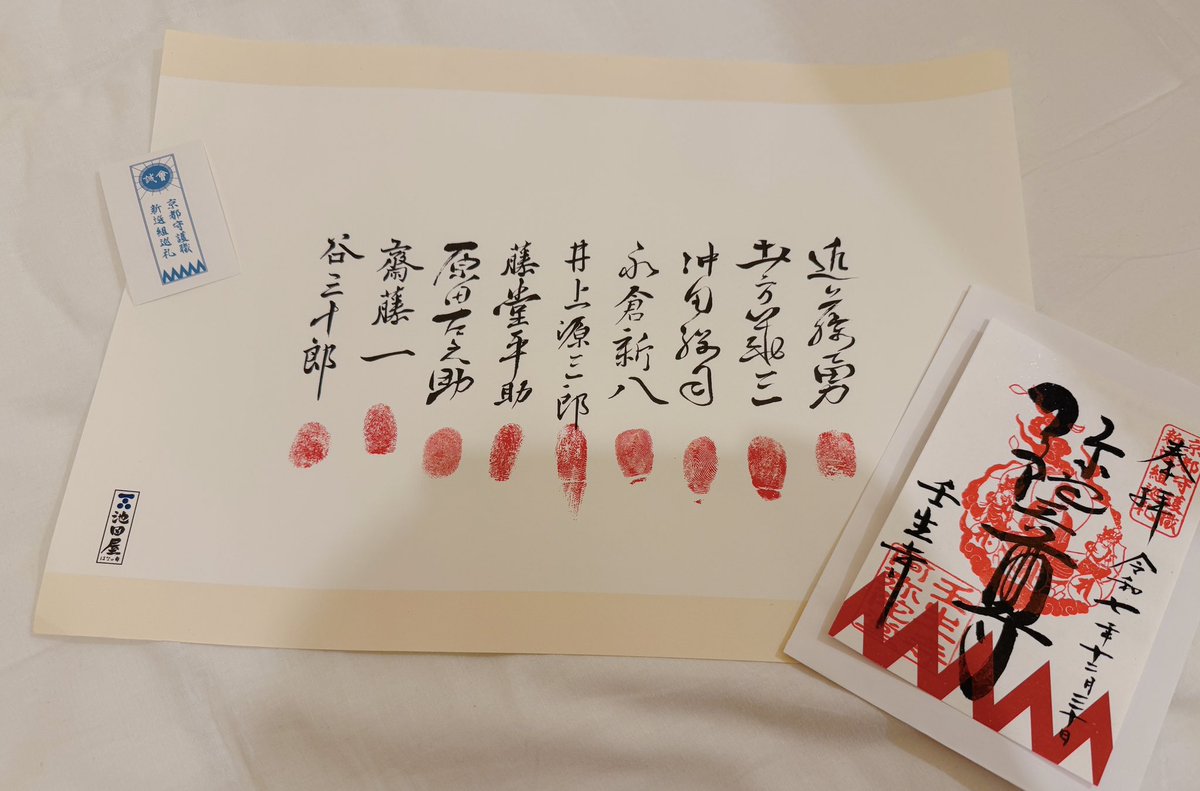 誠會
京都守護職
新選組巡礼
近藤勇
土方歳三
沖田総司
永倉新八
井上源三郎
藤堂平助
原田左之助
齋藤一
谷三十郎
池田屋
はなの舞
奉拝
令和七年十二月三十日
弥陀三尊
壬生寺